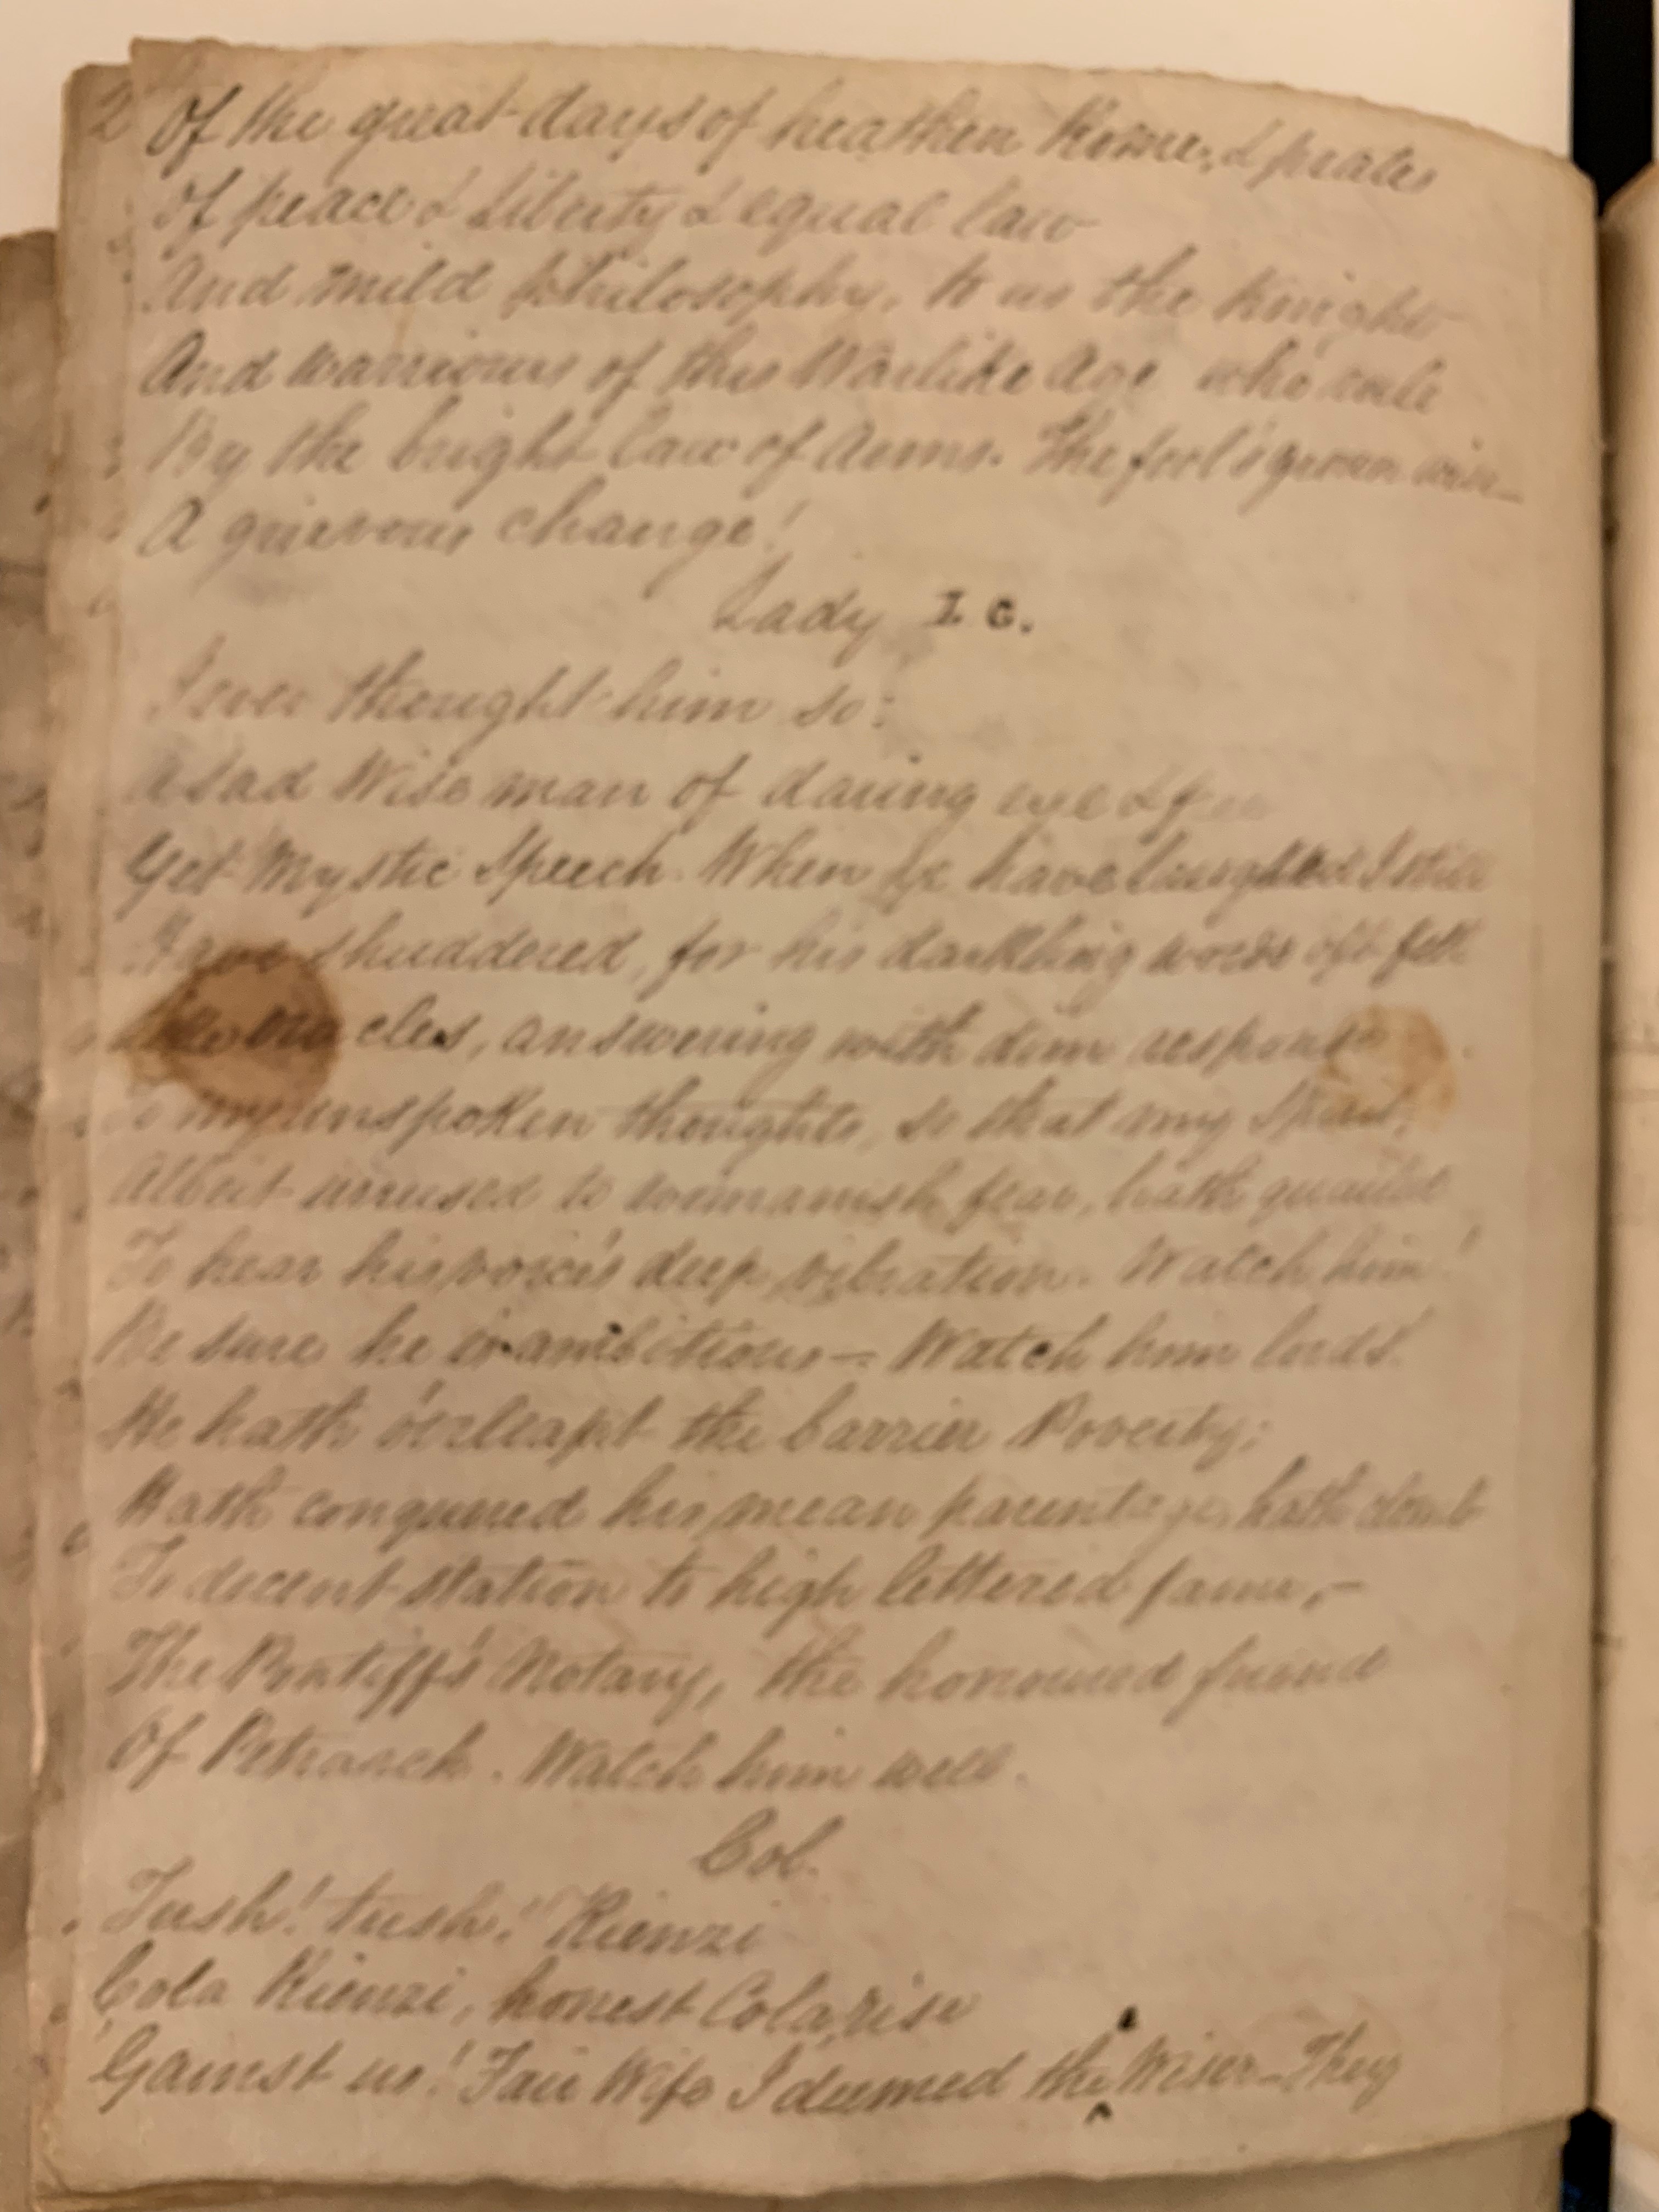 2 Of the great days of heathen Rome, & prates
Of peace & Liberty & equal law
And mild philosophy, to us the Knights
And warriours of this Warlike Age who rule
By the bright law of Arms. The fool's grown wise_
A grievous change!
Lady I C.
I ever thought him so:
A sad Wise man of daring eye & free
Yet Mystic Speech. When Ye have laughed I still
Have shuddered, for his darkling words oft fell
cles, answering with dim response
To my unspoken thoughts, so that my Spirit,
Albeit unused to womanish fear, hath quailed
To hear his voice's deep vibration. Watch him!
Be sure he is ambitious — Watch him lords!
He hath o'erleapt the barrier Poverty;
Hath conquered his mean parentage, hath clomb
To decent station to high lettered fame,—
The Pontiff's Notary, the honoured friend
Of Petrarch. Watch him well.
Col.
Tush! tush! Rienzi
Cola Rienzi, honest Cola rise
'Gainst us! Fair Wife I deemed the Wiser – They